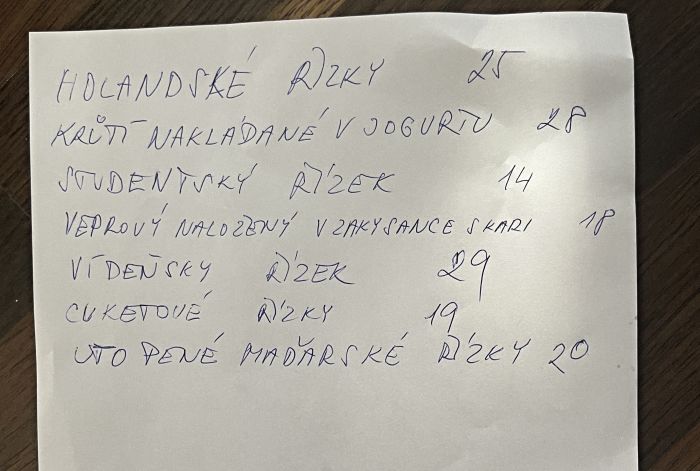 HOLANDSKÉ ŘÍZKY 25
KRŮTÍ NAKLÁDANÉ V JOGURTU 28
STUDENTSKÝ ŘÍZEK 14
VEPROVÝ NALOŽENÝ V ZAKYSANCE S KARI 18
VÍDEŇSKY ŘÍZEK 29
CUKETOVÉ ŘÍZKY 19
UTOPENÉ MAĎARSKÉ ŘÍZKY 20